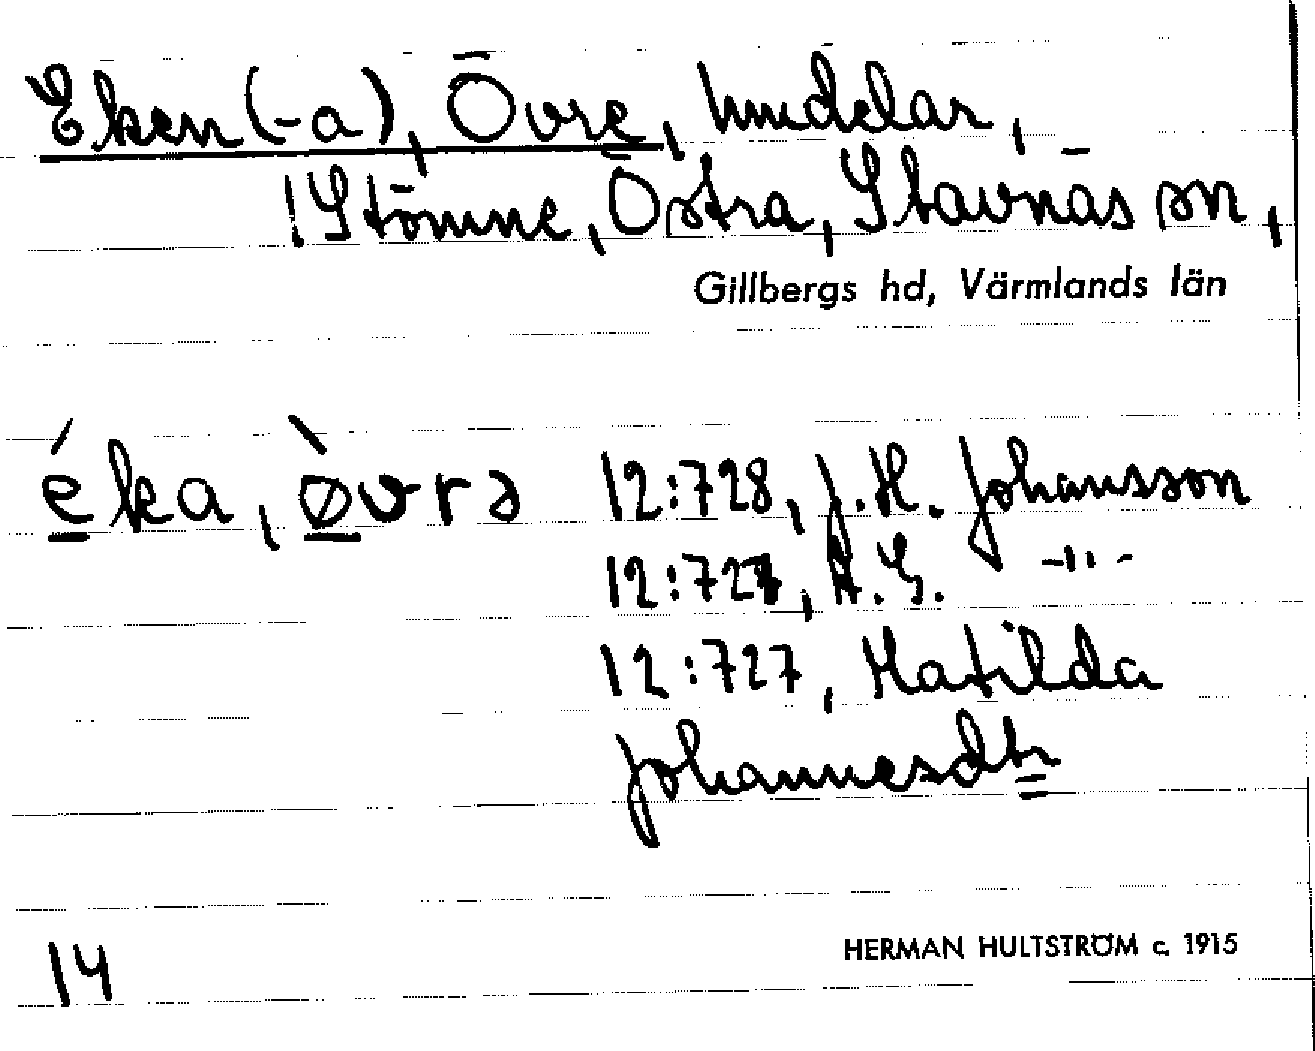 Eken (-a), Övre, hmdelar,
1 Stömne, Östra, Stavnäs sn,
Gillbergs hd, Värmlands län
éka, òvrə 12:728, J. H. Johansson
12:727, A. G. -"-
12:727, Matilda
Johannesdtr
14 HERMAN HULTSTRÖM c. 1915